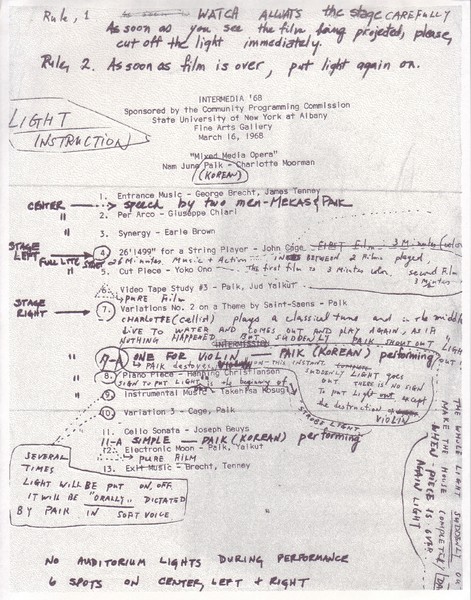 Rule, 1 WATCH ALWAYS the stage CAREFULLY
As soon as you see the film being projected, please,
cut off the light immediately.
Rule, 2. As soon as film is over, put light again on.
LIGHT
INSTRUCTION
INTERMEDIA '68
Sponsored by the Community Programming Commission
State University of New York at Albany
Fine Arts Gallery
March 16, 1968
"Mixed Media Opera"
Nam June Paik - Charlotte Moorman
(KOREAN)
1. Entrance Music - George Brecht, James Tenney
CENTER speech by two men - MEKAS & PAIK
" 2. Per Arco - Giuseppe Chiari
" 3. Synergy - Earle Brown
STAGE
LEFT
FULL LITE
4. 26'1499" for a String Player - John Cage FIRST Film 3 Minutes
26 Minutes. Music + Action BETWEEN 2 Films played,
" 5. Cut Piece - Yoko Ono The first film is 3 Minutes color, second Film
3 Minutes
6. Video Tape Study #3 - Paik, Jud Yalkut
PURE Film
STAGE
RIGHT
7. Variations No. 2 on a Theme by Saint-Saens - Paik
CHARLOTTE (cellist) plays a classical tune and in the middle
DIVE TO WATER AND COMES OUT AND PLAY AGAIN, AS IF
NOTHING HAPPENED BUT SUDDENLY PAIK, SHOUT OUT LIGHT
OUT!
INTERMISSION
" 7-A ONE FOR VIOLIN - PAIK (KOREAN) performing
PAIK destroys VIOLIN - THIS INSTANT SUDDENLY LIGHT GOES
" 8. Piano Piece - Henning Christiansen
OUT THERE IS NO SIGN
SIGN TO PUT LIGHT is the beginning of
to PUT Light out except
" 9. Instrumental Music - Takehisa Kosugi
the destruction of
VIOLIN
" 10. Variation 3 - Cage, Paik
STROBE LIGHT
11. Cello Sonata - Joseph Beuys
11-A SIMPLE - PAIK (KOREAN) performing
12. Electronic Moon - Paik, Yalkut
PURE FILM
13. Exit Music - Brecht, Tenney
SEVERAL
TIMES
LIGHT WILL BE PUT ON, OFF
IT WILL BE "ORALLY" DICTATED
BY PAIK IN SOFT VOICE
THE WHOLE LIGHT SUDDENLY
MAKE THE HOUSE COMPLETELY
WHEN PIECE IS OVER
AGAIN LIGHT
NO AUDITORIUM LIGHTS DURING PERFORMANCE
6 SPOTS ON CENTER, LEFT + RIGHT